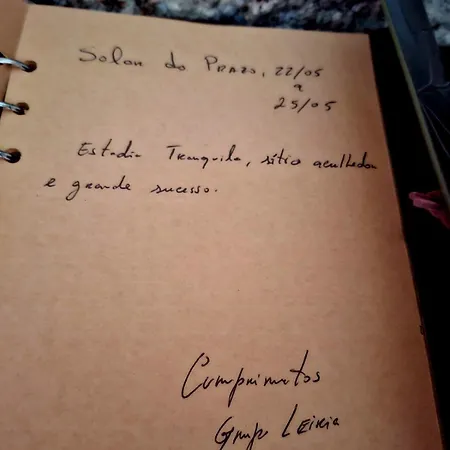 Solar do Prazo, 22/05
a
25/05
Estadia Tranquila, sítio acolhedor
e grande sucesso.
Cumprimentos
Grupo Leiria